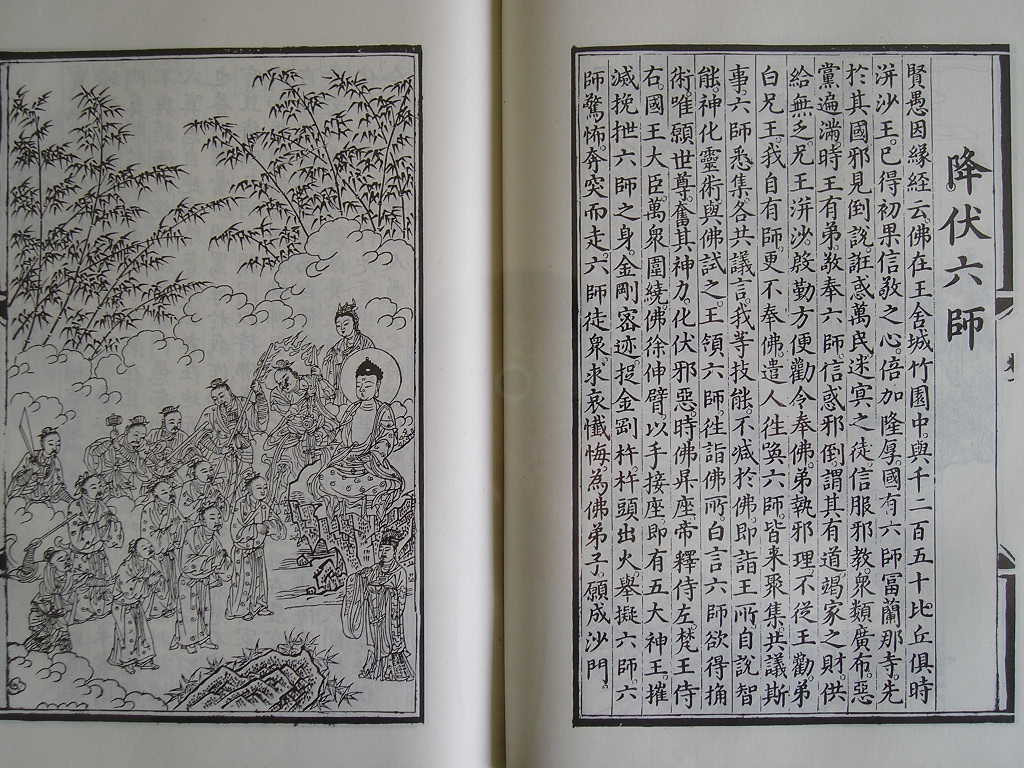 降伏六師
賢愚因緣經云。佛在王舍城竹園中。與千二百五十比丘俱時
洴沙王。已得初果。信敬之心。倍加隆厚。國有六師富蘭那等。先
於其國。邪見倒說。誑惑萬民。迷冥之徒。信服邪教。眾類廣布。惡
黨遍滿。時王有弟。敬奉六師。信惑邪倒。謂其有道。竭家之財。供
給無乏。兄王洴沙。慇勤方便。勸令奉佛。弟執邪理。不從王勸。弟
白兄王。我自有師。更不奉佛。遣人往喚六師。皆來聚集。共議斯
事。六師悉集。各共議言。我等技能。不減於佛。即詣王所。自說智
能。神化靈術。與佛試之。王領六師。往詣佛所。白言六師欲得捔
術。唯願世尊。奮其神力。化伏邪惡。時佛昇座。帝釋侍左。梵王侍
右。國王大臣。萬眾圍繞。佛徐伸臂。以手接座。即有五大神王。摧
滅挽拽六師之身。金剛密迹捉金剛杵。杵頭出火。舉擬六師。六
師驚怖。奔突而走。六師徒眾。求哀懺悔。為佛弟子。願成沙門。